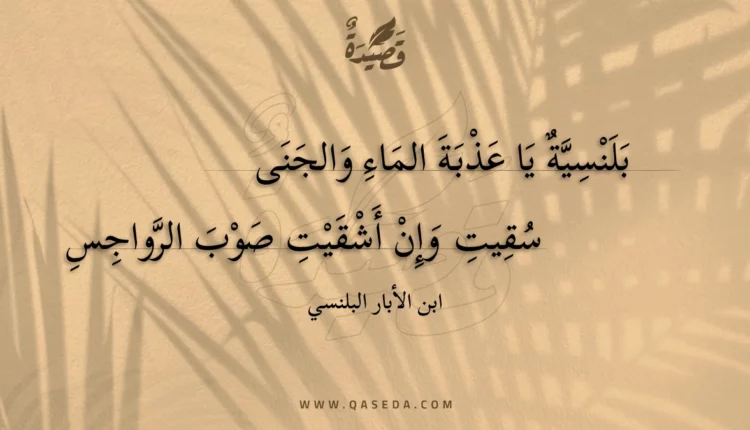 قَصِيدَةٌ
بَلَنْسِيَّةٌ يَا عَذْبَةَ المَاءِ وَالجَنَى
سُقِيتِ وَإِنْ أَشْقَيْتِ صَوْبَ الرَّواجِسِ
ابن الأبار البلنسي
WWW.QASEDA.COM